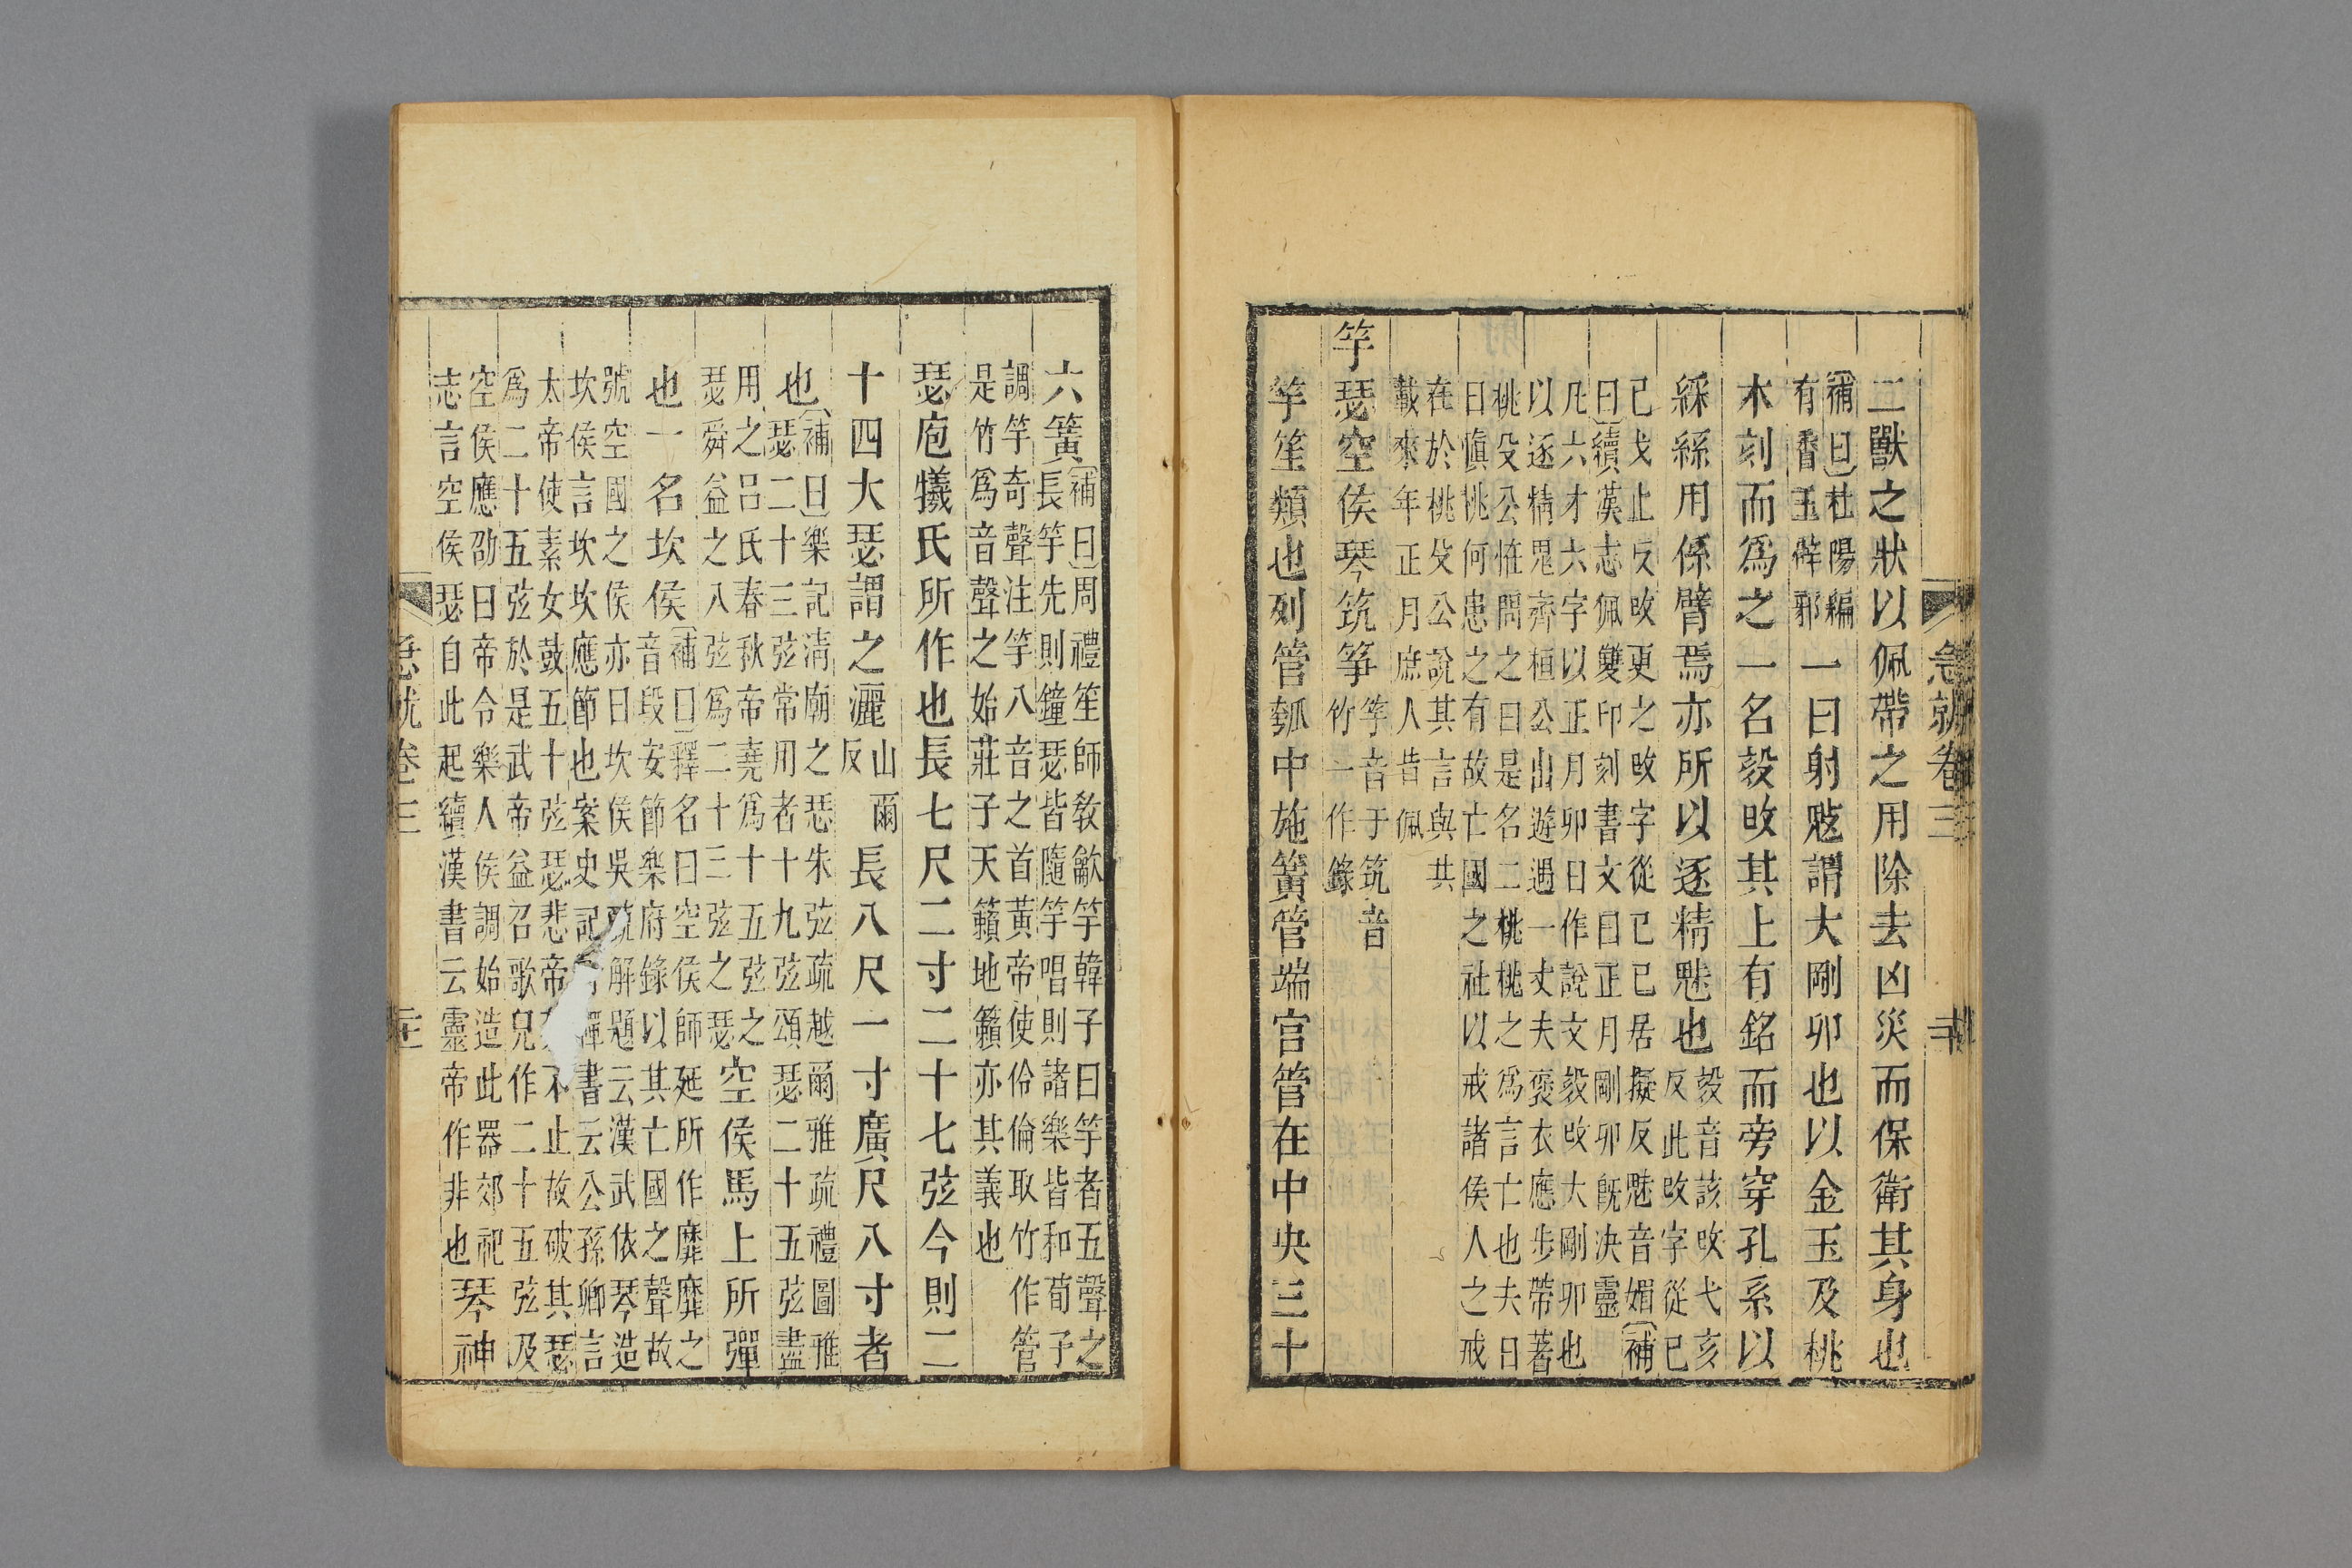 急就卷三
二獸之狀以佩帶之用除去凶災而保衛其身也
補曰杜陽編
有香玉辟邪
一曰射鬾謂大剛卯也以金玉及桃
木刻而爲之一名㱾攺其上有銘而旁穿孔系以
綵絲用係臂焉亦所以逐精魅也
㱾音該攺弋亥
反此攺字從巳
已戈止反攺更之攺字從已已居擬反魅音媚補
曰續漢志佩雙印刻書文曰正月剛卯旣決靈
凡六才六字以正月卯日作說文㱾攺大剛卯也
以逐精鬼齊桓公出遊遇一丈夫褒衣應步帶著
桃殳公怪問之曰是名二桃桃之爲言亡也夫日
日愼桃何患之有故亡國之社以戒諸侯人之戒
在於桃殳公說其言與共
載來年正月庶人昔佩
竽瑟空侯琴筑箏
竽音于筑音
竹一作錄
竽笙類也列管匏中施簧管端宮管在中央三十
六簧
補曰周禮笙師敎龡竽韓子曰竽者五聲之
長竽先則鐘瑟皆隨竽唱則諸樂皆和荀子
調竽奇聲注竽八音之首黃帝使伶倫取竹作管
是竹爲音聲之始莊子天籟地籟亦其義也
瑟庖犧氏所作也長七尺二寸二十七弦今則二
十四大瑟謂之灑
山爾
反
長八尺一寸廣尺八寸者
也
補曰樂記淸廟之瑟朱弦疏越爾雅疏禮圖雅
瑟二十三弦常用者十九弦頌瑟二十五弦盡
用之呂氏春秋帝堯爲十五弦之
瑟舜益之八弦爲二十三弦之瑟
空侯馬上所彈
也一名坎侯
補曰釋名曰空侯師延所作靡靡之
音段安節樂府錄以其亡國之聲故
號空國之侯亦曰坎侯吳解題云漢武依琴造
坎侯言坎坎應節也案史記書云公孫卿言
太帝使素女鼓五十弦瑟悲帝不止故破其瑟
爲二十五弦於是武帝益召歌兒作二十五弦及
空侯應劭曰帝令樂人侯調始造此器郊祀
志言空侯瑟自此起續漢書云靈帝作非也
琴神
急就卷三